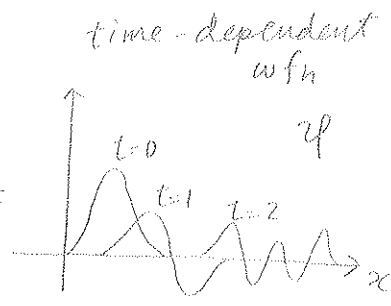 time-dependent
wfn
ψ
t=0
t=1
t=2
x